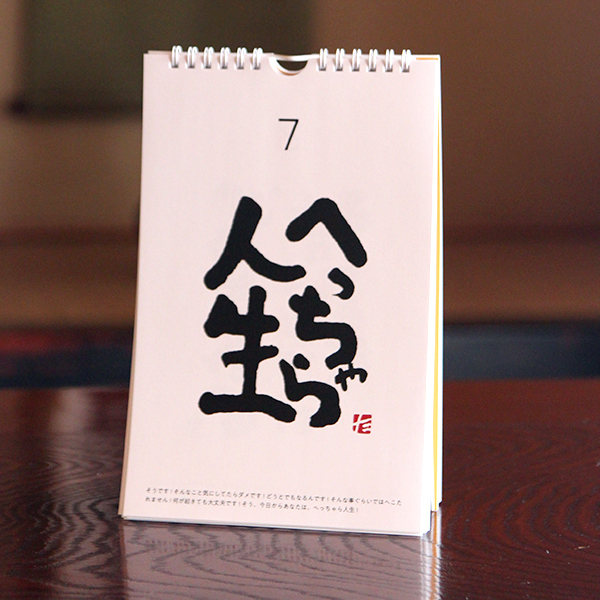 7
へっちゃら
人生
そうです!そんなこと気にしてたらダメです!どうとでもなるんです!そんな事ぐらいではへこた
れません!何が起きても大丈夫です!そう、今日からあなたは、へっちゃら人生!